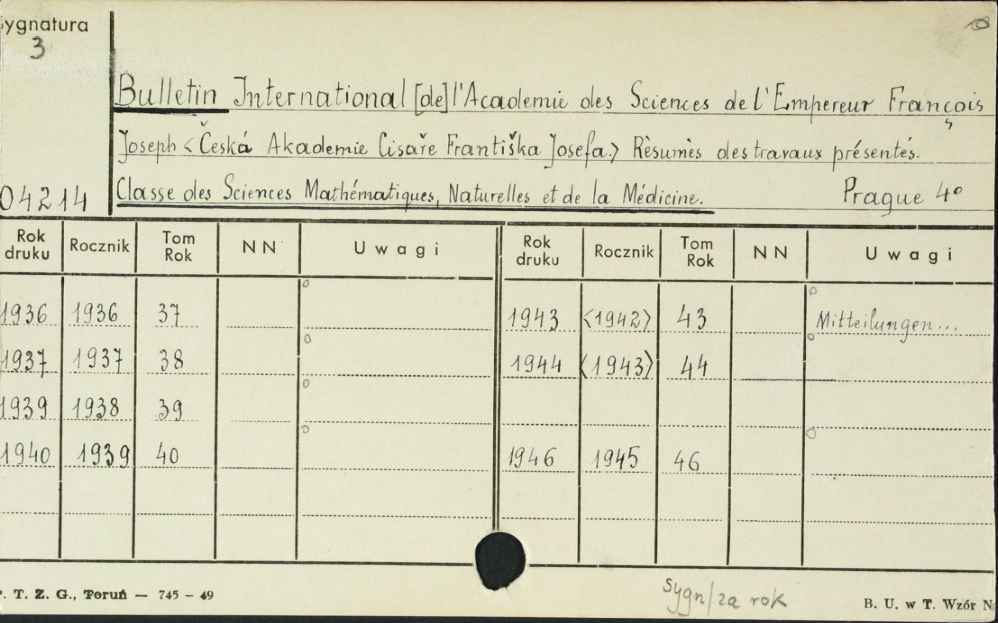 Sygnatura
3
Bulletin International [de] l'Academie des Sciences de l'Empereur François
Joseph <Česká Akademie Cisaře Františka Josefa.> Rèsumès des travaux présentés.
04214 Classe des Sciences Mathématiques, Naturelles et de la Médicine. Prague 4°
Rok druku Rocznik Tom Rok NN Uwagi Rok druku Rocznik Tom Rok NN Uwagi
1936 1936 37 1943 <1942> 43 Mitteilungen...
1937 1937 38 1944 <1943> 44
1939 1938 39
1940 1939 40 1946 1945 46
Sygn/za rok
P. T. Z. G., Toruń — 745 – 49 B. U. w T. Wzór N